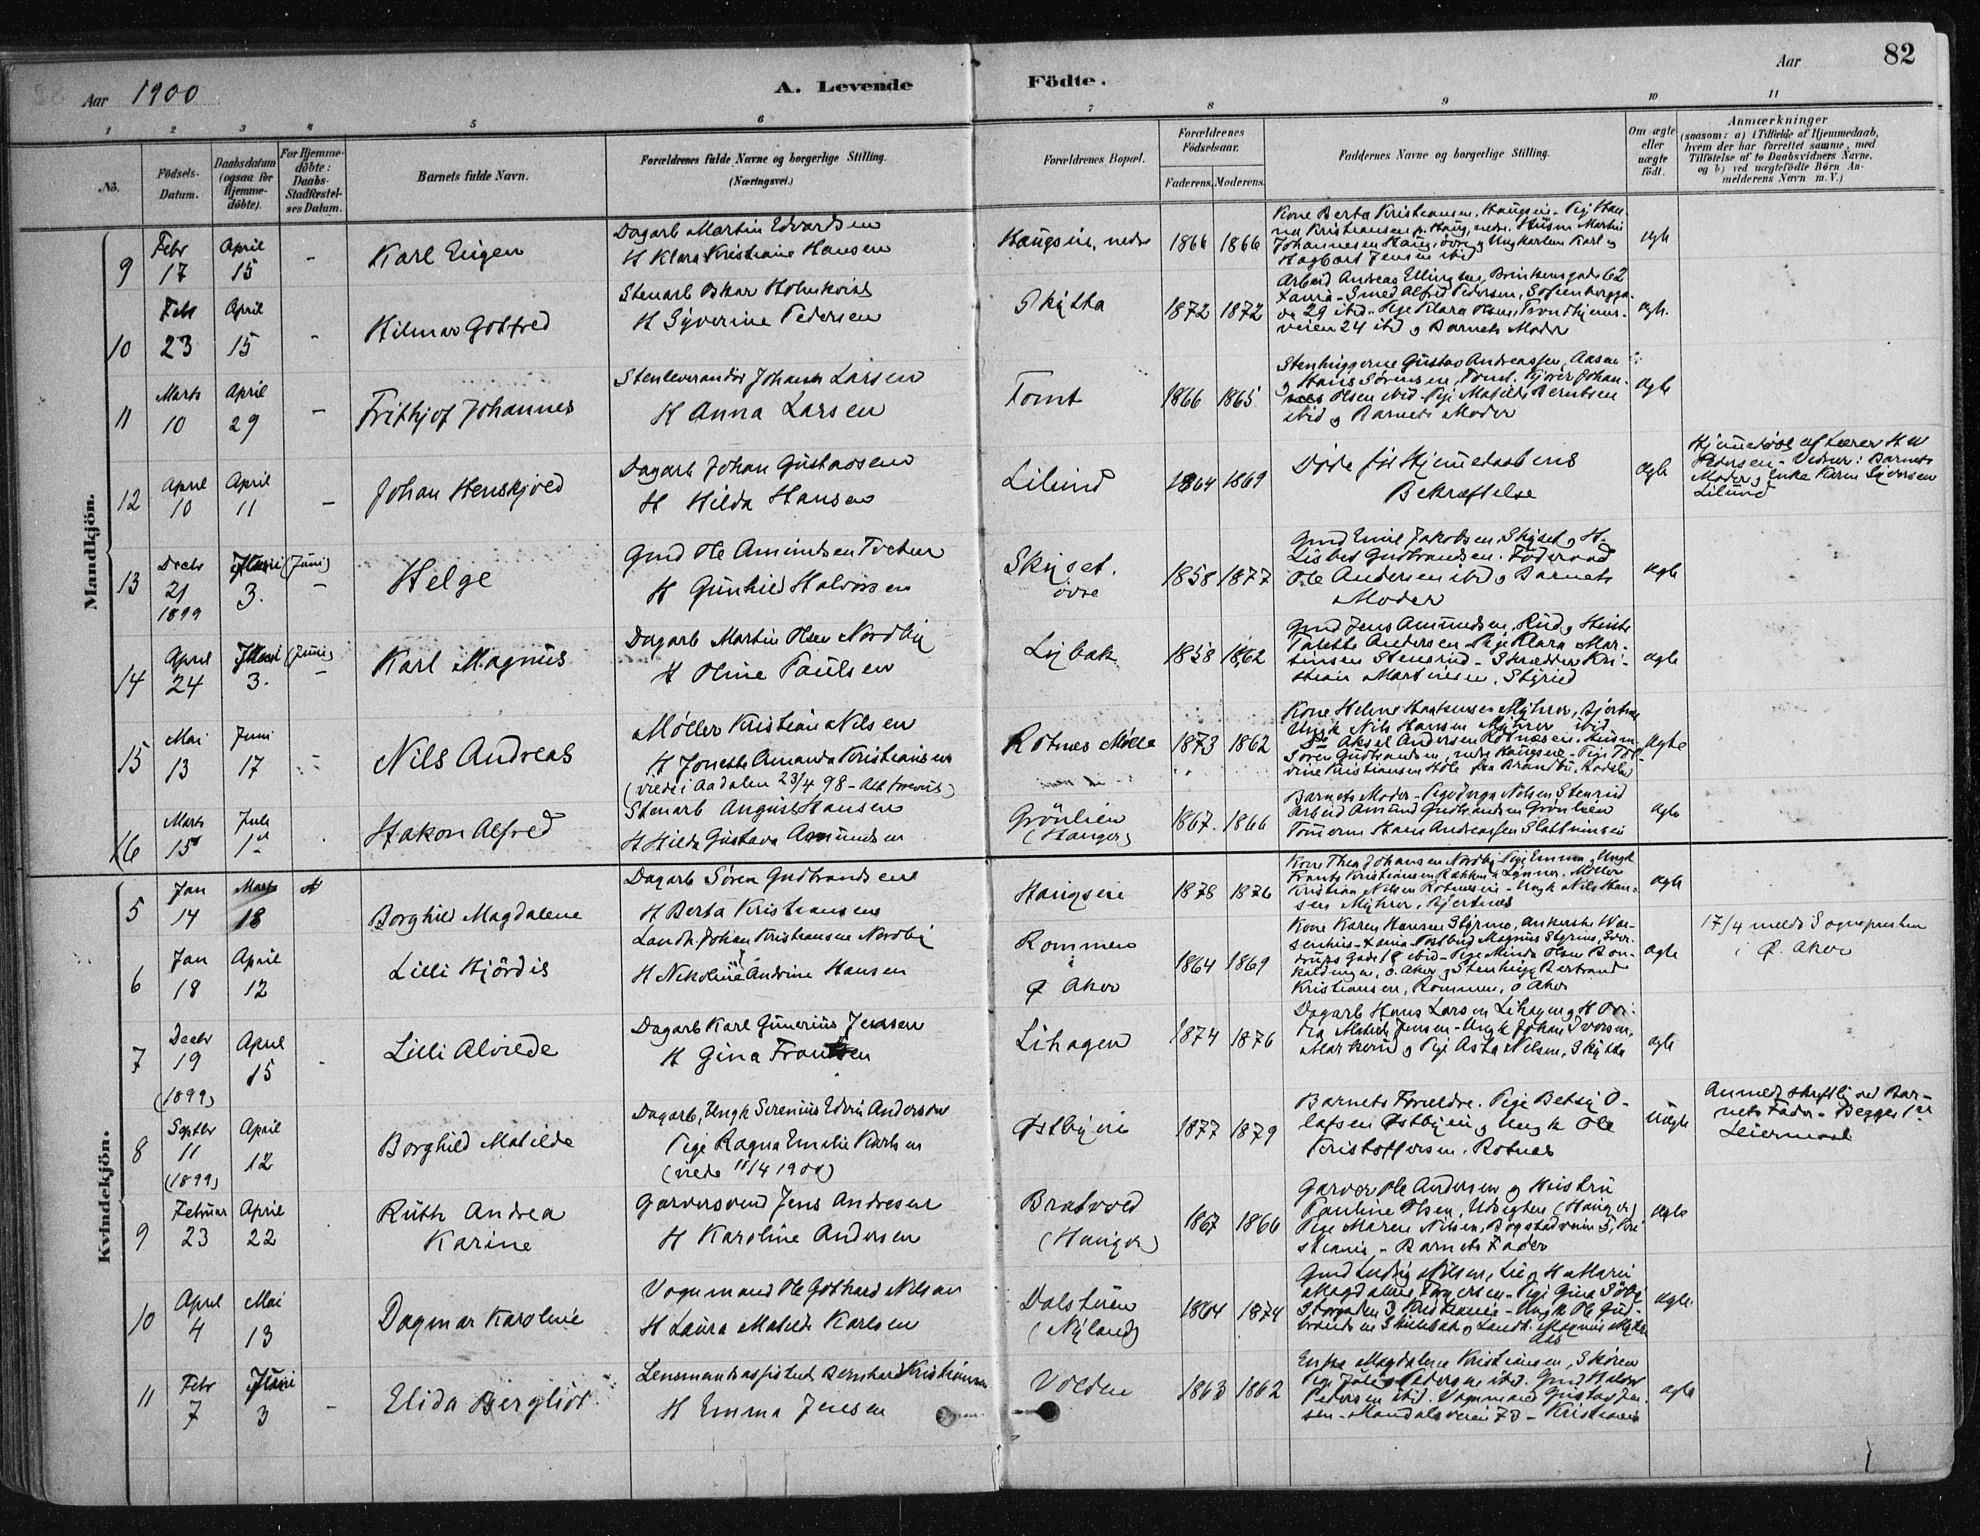 82
Aar 1900
A. Levende Födte.
Aar
1 2 3 4 5 6 7 8 9 10 11
No.
Födsels-Datum.
Daabsdatum (ogsaa for Hjemme-döbte).
For Hjemme-döbte: Daabs-Stadfæstel-ses Datum.
Barnets fulde Navn.
Forældrenes fulde Navne og borgerlige Stilling. (Næringsvei.)
Forældrenes Bopæl.
Forældrenes Födselsaar.
Faderens. Moderens.
Faddernes Navne og borgerlige Stilling.
Om ægte eller uægte födt.
Anmærkninger
(saasom: a) i Tilfælde af Hjemmedaab, hvem der har forrettet samme, med Tilföielse af to Daabsvidners Navne, og b) ved uægtefödte Börn An-melderens Navn m. V.)
Mandkjön.
9 Febr 17 April 15 - Karl Eugen
Dagarb Martin Edvardsen
H Klara Kristiane Hansen
Haugsin, nedre 1866 1866
Kone Berta Kristiansen, Haugsin - Pige Han-
na Kristiansen
Johannesen Haug, øvre og Ungkarlene Karl og
Hagbart Jensen ibid
ægte
10 Febr 23 April 15 - Hilmar Gotfred
Stenarb Oskar Holmkvist
H Syverine Pedersen
Skytta 1872 1872
Arbeid Andreas Ellingsen, Brinkensgade 62
Xania - Smed Alfred Pedersen, Sofienbergga-
de 29 ibid - Pige Klara Olsen, Trondhjems-
veien 24 ibid og Barnets Moder
ægte
11 Marts 10 April 29 - Frithjof Johannes
Stenleverandör Johann Larsen
H Anna Larsen
Tomt 1866 1865
Stenhuggerne Gustav Andreassen, Aasen
og Hans Sörensen, Tomt. Kjörer Johan-
nes Olsen ibid - Pige Matilde Berntsen
ibid og Barnets Moder
ægte
12 April 10 April 11 - Johan Henskjold
Dagarb Johan Gustavsen
H Hilda Hansen
Lilund 1864 1869
Döde för Hjemmedaabens
Bekræftelse
ægte
Hjemmedöbt af Lærer H W
Pedersen - Vidner: Barnets
Moder og Enke Karen Syversen
Lilund
13 Decbr 21 1899 Juni (Juni) 3. - Helge
Gmd Ole Amundsen Tveten
H Gunhild Halvorsen
Skyset øvre 1858 1877
Gmd Emil Jakobsen Skyset og H.
Lisbet Gudbrandsen. Föderaad
Ole Andersen ibid og Barnets
Moder
ægte
14 April 24 Juni (Juni) 3. - Karl Magnus
Dagarb Martin Olsen Nordby
H Oline Paulsen
Lybak 1858 1862
Gmd Jens Amundsen, Rud og Hustr
Tarette Andersen - Pige Klara Mar-
tinsen Stensrud - Skrædder Kri-
stian Martinsen, Styrid
ægte
15 Mai 13 Juni 17 Nils Andreas
Möller Kristian Nilsen
H Jonette Amanda Kristiansen
(viede i Aadalen 23/4 98 - Att forevist)
Rotnes Mölle 1873 1862
Kone Helene Myhrer, Gjertnes
Ungk Nils Hansen Myhrer ibid
Do Aksel Andersen Rotnæsen, Husm.
Sören Gudbrandsen, nedre Haugsin - Pige Tol-
vine Kristiansen Hole fra Brandbu, Hadeland
ægte
16 Marts 15 Juli 1st Hakon Alfred
Stenarb August Hansen
H Hilda Gustava Amundsen
Grönlien (Hauger) 1867 1866
Barnets Moder - Pige Berga Nilsen Stensrud
Arbeid Amund Gudbrandsen Grönlien
Tömmerm Hans Andreassen Slattumsin
ægte
Kvindekjön.
5 Jan 14 Marts 18 Borghild Magdalene
Dagarb Sören Gudbrandsen
H Berta Kristiansen
Haugsin 1878 1876
Kone Thea Johansen Nordby, Pige Emma, Ungk
Frants Kristiansen Rakken, Lynner, Möller
Kristian Nilsen Rotnæsin - Ungk Nils Han-
sen Myhrer, Gjertnes
ægte
6 Jan 18 April 12 Lilli Hjördis
Landh. Johan Kristiansen Nordby
H Nikoline Andrine Hansen
Rommen i Ø Aker 1864 1869
Kone Karen Hansen Styrmo, Ankerske Wa-
senhus - Xania - Postbud Magnus Styrmo, Sver-
drups Gade 18 ibid - Pige Minda Olsen Bon-
kaldingen, Ø. Aker og Stenhugg Bertrand
Kristiansen, Rommen, Ø Aker
ægte
17/4 meldt Sognepresten
i Ø. Aker
7 Decbr 19 (1899) April 15 - Lilli Alvilde
Dagarb Karl Gunerius Jensen
H Gina Frantsen
Lihagen 1874 1876
Dagarb Hans Larsen Lihagen og H Ovi-
dia Matilde Jensen - Ungk Johan Iversen,
Markerud og Pige Asta Nilsen, Skytta
ægte
8 Septbr 11 (1899) April 12 Borghild Matilde
Dagarb, Ungk Serenius Edvin Andersen
Pige Ragna Emilie Karlsen
(viede 11/4 1900)
Østbyin 1877 1879
Barnets Forældre. Pige Betsy O-
lafsen Østbyin og Ungk Ole
Kristoffersen. Rotnes
Uægte
Anmeldt skriftlig ved Bar-
nets Fader - Begges 1ste
Leiermaal
9 Februar 23 April 22 Ruth Andrea Karine
Garversvend Jens Andresen
H Karoline Andersen
Bratvold (Hauger) 1867 1866
Garver Ole Andersen og Hustru
Pauline Olsen, Udsigten (Hauger)
Pige Maren Nilsen, Bogstadveien 5, Kri
stiania - Barnets Fader
ægte
10 April 4 Mai 13 Dagmar Karoline
Vognmand Ole Gothard Nilsen
H Laura Matilde Karlsen
Dalstuen (Nyland) 1864 1874
Gmd Ludvig Nilsen, Li og H Marie
Magdalene Torgersen - Pige Gina Söby
Storgaden 3 Kristiania - Ungk Ole Gud-
brandsen Skillebæk og Landh. Magnus
ægte
11 Febr 7 Juni 3 - Elida Bergliot
Lensmandsassistent Bernhard Kristiansen
H Emma Jensen
Volden 1863 1862
Enke Magdalene Kristiansen, Skören
Pige Julie Pedersen ibid. Gmd Halvor
Pedersen ibid. Vognmand Gustav Jen-
sen - Mandalsveien 73 - Kristiania
ægte